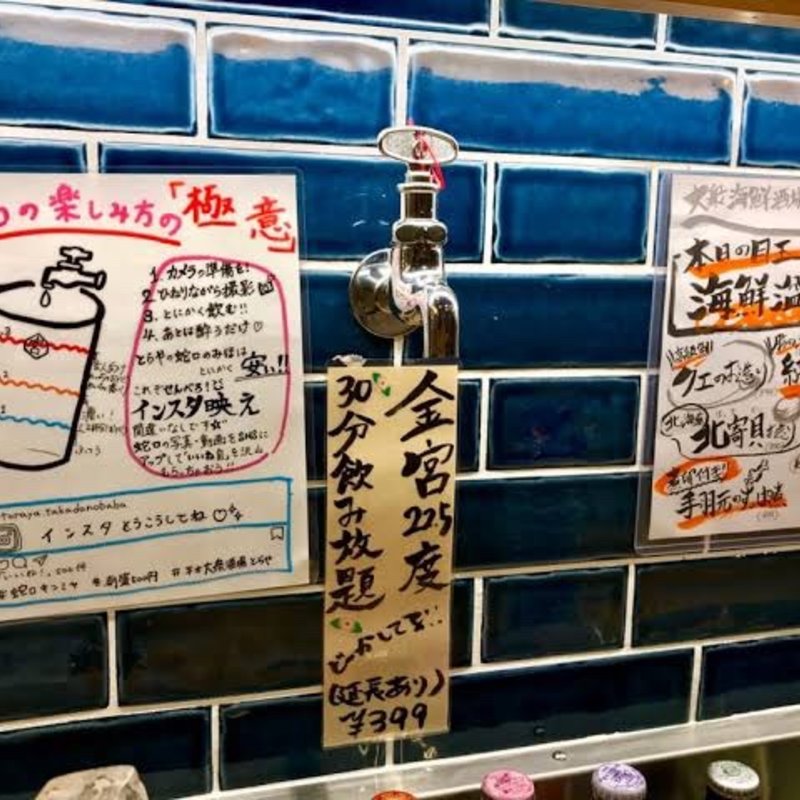 の楽しみ方の「極意」
1. カメラの準備を!
2 ひねりながら撮影
3. とにかく飲む!!
4. あとは酔うだけ♡
とらやの蛇口のみほは
とにかく 安い!!
これぞせんべろ!
インスタ映え
間違いなしです☆
蛇口の写真・動画を
アップして「いいね」を沢山
もらっちゃおう!!
toraya.takadanobaba
インスタ とうこうしてね♡
金宮22.5度
30分飲み放題
(延長あり)
¥399
大衆海鮮酒場
本日の目玉
海鮮
クエの
北海道
北寄貝
手羽元の